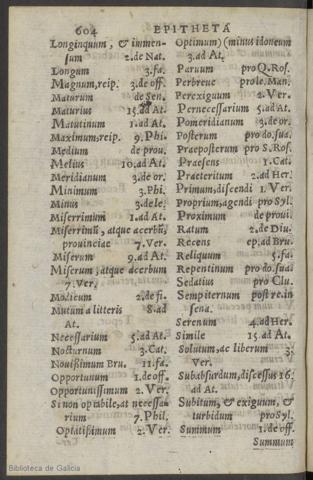 604 EPITHETA
Longinquum, & immen-
sum 2.de Nat.
Longum 3.fa.
Magnum, reip. 3.de off.
Maturum de Sen.
Maturius 15.ad At.
Matutinum 1.ad At.
Maximum, reip. 9.Phi.
Medium de prou.
Melius 10.ad At.
Meridianum 3.de or.
Minimum 3.Phi.
Minus 3.de le.
Miserrimum 1.ad At.
Miserrimũ, atque acerbũ,
prouinciae 7.Ver.
Miserum 9.ad At.
Miserum, atque acerbum
7.Ver.
Modicum 2.de fi.
Mutum a litteris 8.ad
At.
Necessarium 5.ad At.
Nocturnum 3.Cat.
Nouissimum Bru. 11.fa.
Opportunum 1.de off.
Opportunissimum 2.Ver.
Si non optabile, at necessa-
rium 7.Phil.
Optatissimum 2.Ver.
Optimum) (minus idoneum
3.ad At.
Paruum pro Q.Ros.
Perbreue pro le.Man.
Perexiguum 2.Ver.
Pernecessarium 5.ad At.
Pomeridianum 3.de or.
Posterum pro do.sua.
Praeposterum pro S.Ros.
Praesens 1.Cat.
Praeteritum 2.ad Her.
Primum, discendi 1.Ver.
Proprium, agendi pro Syl.
Proximum de proui.
Ratum 2.de Diu.
Recens ep.ad Bru.
Reliquum 5.fa.
Repentinum pro do.sua.
Sedatius pro Clu.
Sempiternum post re.in
sena.
Serenum 4.ad Her.
Simile 15.ad At.
Solutum, ac liberum 3.
Ver.
Subabsurdum, discessus 16.
ad At.
Subitum, & exiguum, &
turbidum pro Syl.
Summum 1.de off.
Summum
Biblioteca de Galicia